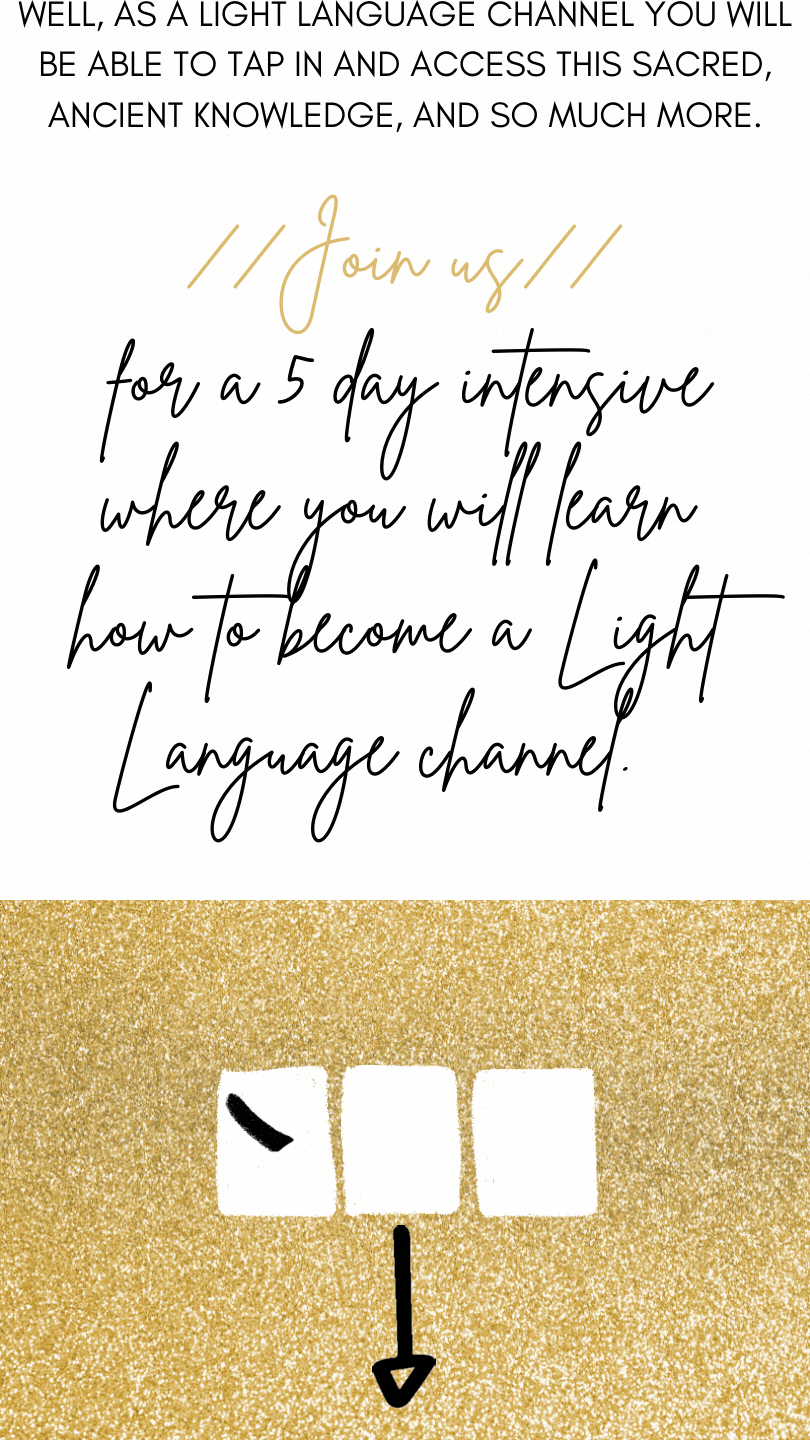 WELL, AS A LIGHT LANGUAGE CHANNEL YOU WILL
BE ABLE TO TAP IN AND ACCESS THIS SACRED,
ANCIENT KNOWLEDGE, AND SO MUCH MORE.
//Join us//
for a 5 day intensive
where you will learn
how to become a Light
Language channel.